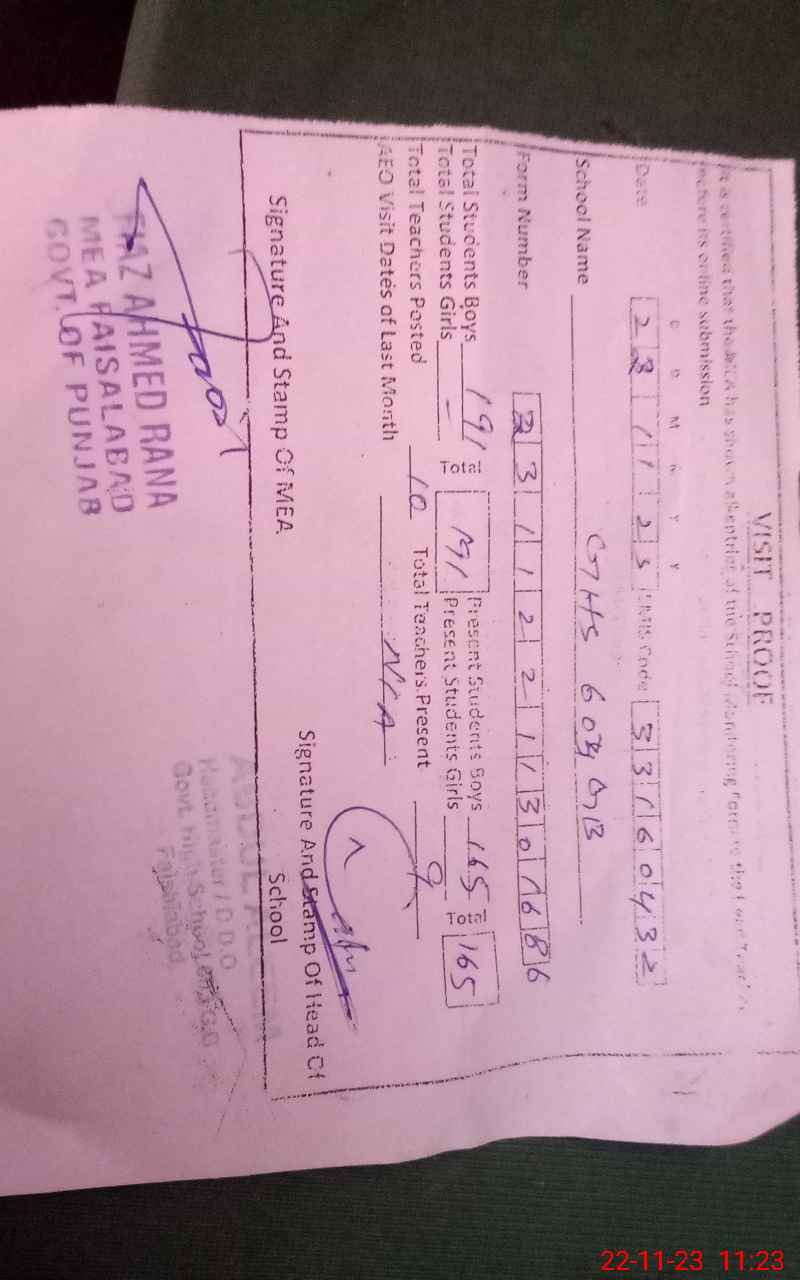 VISIT PROOF
It is certified that the MEA has shown all entries of the School Monitoring Form to the
before its online submission
D D M M Y Y
Date 23 11 23 EMIS Code 33160432
School Name GHS 603 GB
Form Number 23112211301686
Total Students Boys 191 Total 191 Present Students Boys 165 Total 165
Total Students Girls - Present Students Girls
Total Teachers Posted 10 Total Teachers Present 9
AEO Visit Dates of Last Month N.A
Signature And Stamp Of MEA
Signature And Stamp Of Head Of School
AHMED RANA
MEA FAISALABAD
GOVT. OF PUNJAB
Headmaster / D.D.O
Govt. High School
Faisalabad
22-11-23 11:23